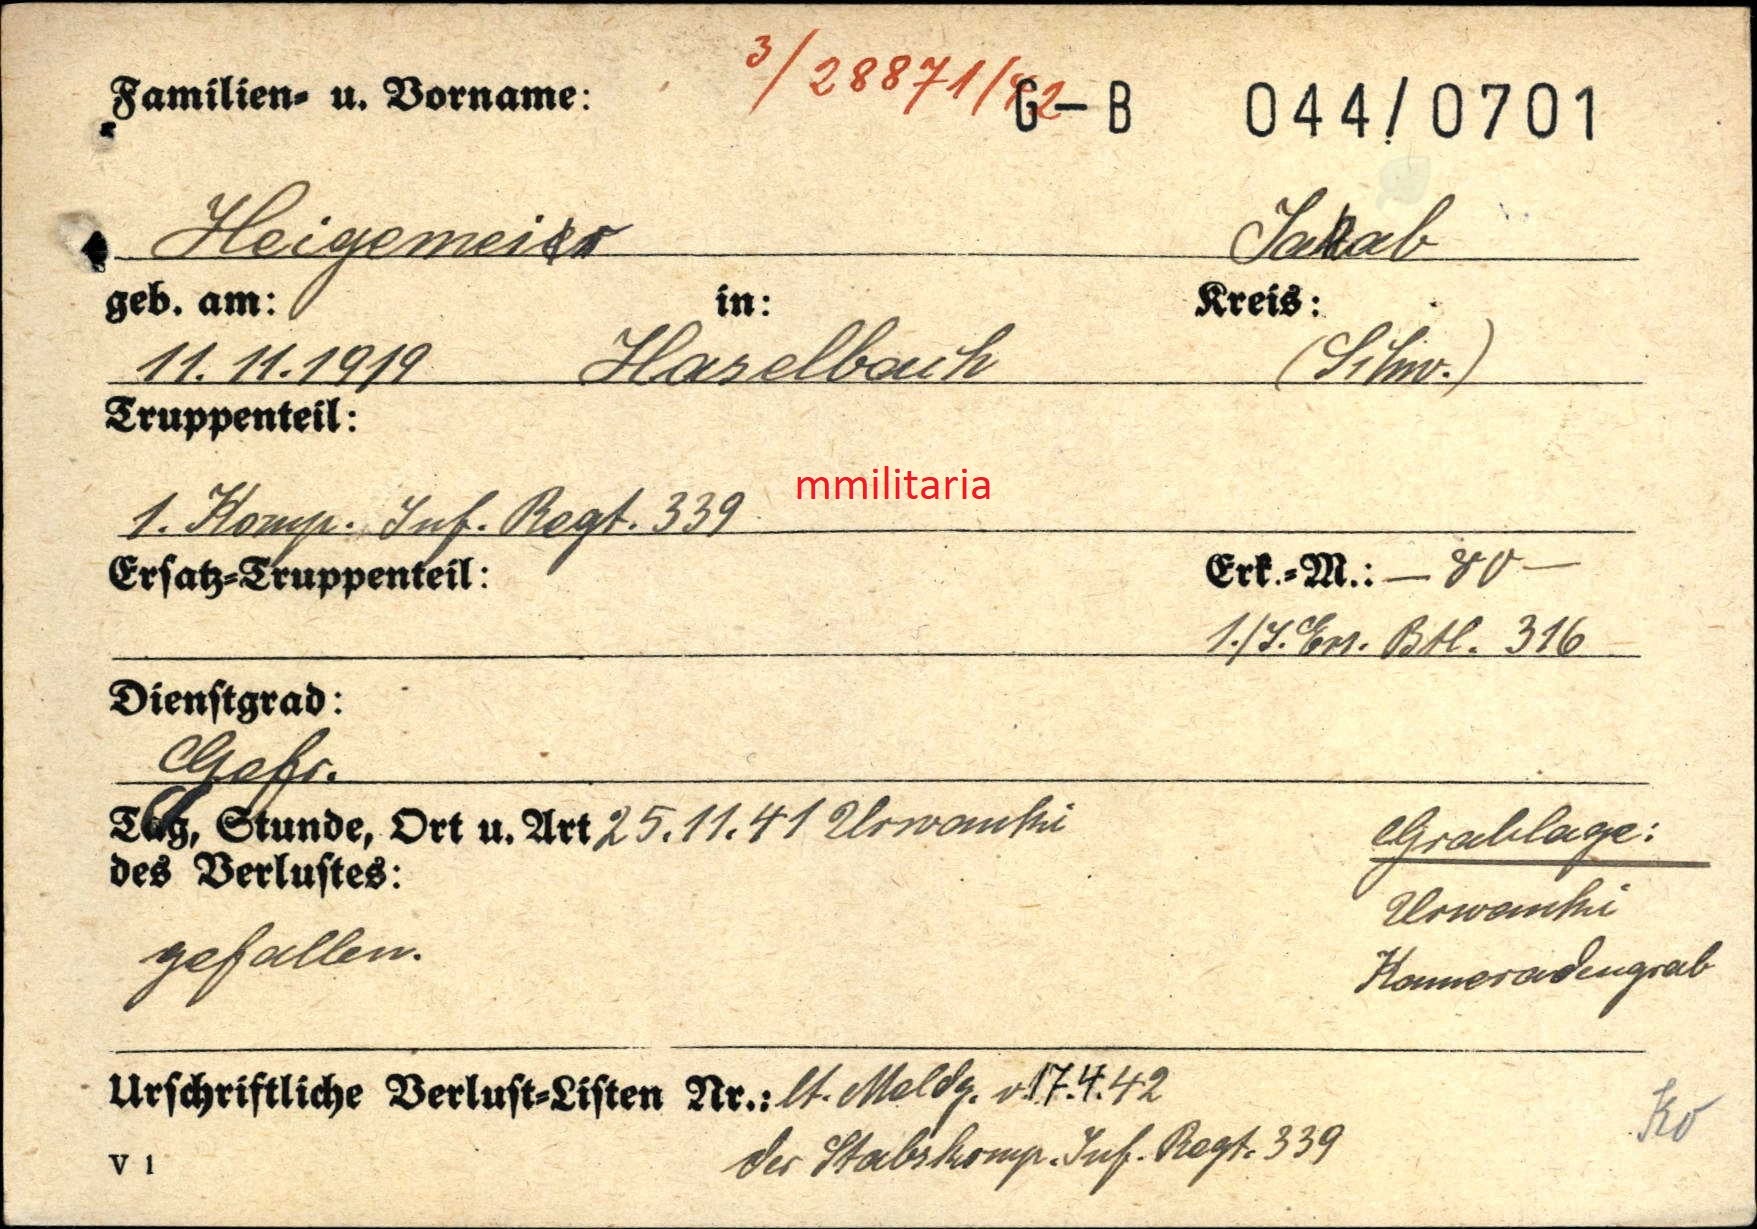 3/28871/42
Familien- u. Vorname:
G-B 044/0701
Heigemeier Jakob
geb. am: in: Kreis:
11.11.1919 Haselbach (Schw.)
Truppenteil:
mmilitaria
1. Komp. Inf. Regt. 339
Ersatz-Truppenteil: Erk.-M.: — 80 —
1./J. Ers. Btl. 316
Dienstgrad:
Gefr.
Tag, Stunde, Ort u. Art 25.11.41 Urwanki
des Verlustes:
Grablage:
Urwanki
gefallen.
Kameradengrab
Urschriftliche Verlust-Listen Nr.: lt. Meldg. v. 17.4.42
der Stabskomp. Inf. Regt. 339
V 1